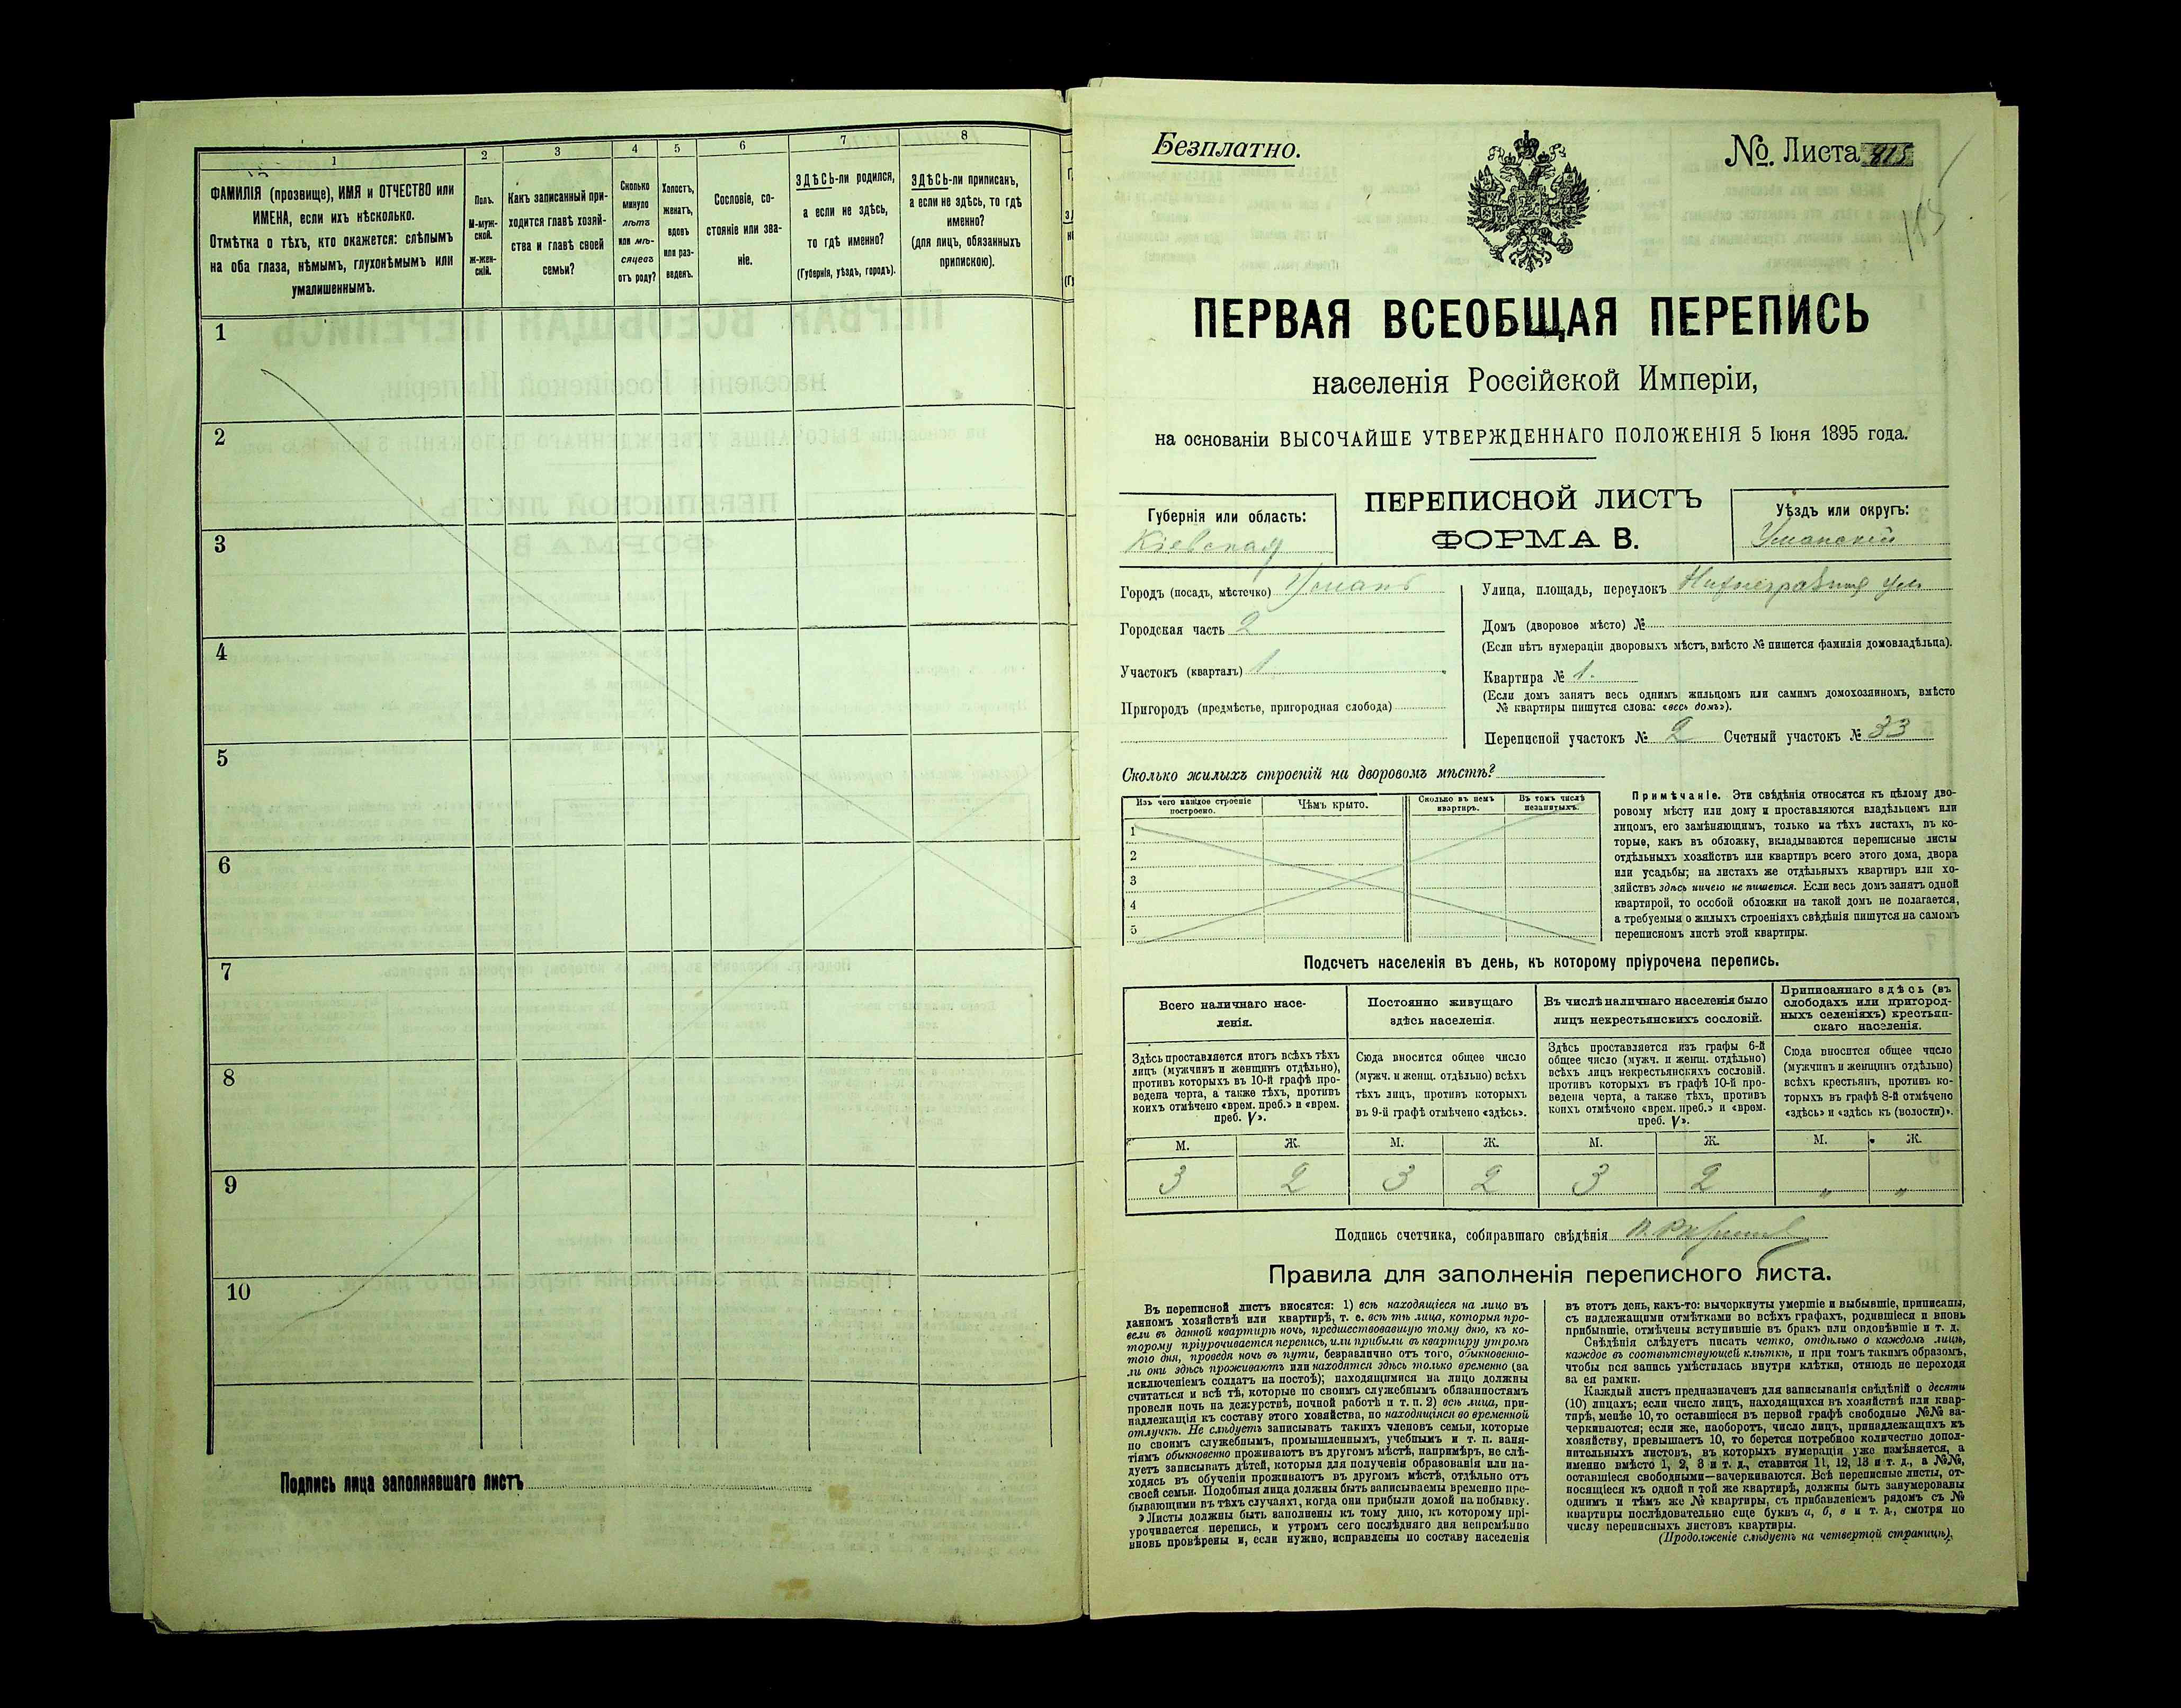 1 2 3 4 5 6 7 8
ФАМИЛІЯ (прозвище), ИМЯ и ОТЧЕСТВО или
ИМЕНА, если ихъ нѣсколько.
Отмѣтка о тѣхъ, кто окажется: слѣпымъ
на оба глаза, нѣмымъ, глухонѣмымъ или
умалишеннымъ.
Полъ.
М-муж-
ской.
ж-жен-
скій.
Какъ записанный при-
ходится главѣ хозяй-
ства и главѣ своей
семьи?
Сколько
минуло
лѣтъ
или мѣ-
сяцевъ
отъ роду?
Холостъ,
женатъ,
вдовъ
или раз-
веденъ.
Сословіе, со-
стояніе или зва-
ніе.
ЗДѢСЬ-ли родился,
а если не здѣсь,
то гдѣ именно?
(Губернія, уѣздъ, городъ).
ЗДѢСЬ-ли приписанъ,
а если не здѣсь, то гдѣ
именно?
(для лицъ, обязанныхъ
припискою).
1
2
3
4
5
6
7
8
9
10
Подпись лица заполнявшаго листъ
Безплатно.
№. Листа 815
ПЕРВАЯ ВСЕОБЩАЯ ПЕРЕПИСЬ
населенія Россійской Имперіи,
на основаніи ВЫСОЧАЙШЕ УТВЕРЖДЕННАГО ПОЛОЖЕНІЯ 5 Іюня 1895 года.
Губернія или область:
Кіевская
ПЕРЕПИСНОЙ ЛИСТЪ
ФОРМА В.
Уѣздъ или округъ:
Уманскій
Городъ (посадъ, мѣстечко) Умань
Городская часть 2
Участокъ (кварталъ) 1
Пригородъ (предмѣстье, пригородная слобода)
Улица, площадь, переулокъ
Домъ (дворовое мѣсто) №
(Если нѣтъ нумераціи дворовыхъ мѣстъ, вмѣсто № пишется фамилія домовладѣльца).
Квартира № 1.
(Если домъ занятъ весь однимъ жильцомъ или самимъ домохозяиномъ, вмѣсто
№ квартиры пишутся слова: «весь домъ»).
Переписной участокъ № 2 Счетный участокъ № 33
Сколько жилыхъ строеній на дворовомъ мѣстѣ?
Изъ чего каждое строеніе
построено.
Чѣмъ крыто.
Сколько въ немъ
квартиръ.
Въ томъ числѣ
незанятыхъ.
1
2
3
4
5
Примѣчаніе. Эти свѣдѣнія относятся къ цѣлому дво-
ровому мѣсту или дому и проставляются владѣльцемъ или
лицомъ, его замѣняющимъ, только на тѣхъ листахъ, въ ко-
торые, какъ въ обложку, вкладываются переписные листы
отдѣльныхъ хозяйствъ или квартиръ всего этого дома, двора
или усадьбы; на листахъ же отдѣльныхъ квартиръ или хо-
зяйствъ здѣсь ничего не пишется. Если весь домъ занятъ одной
квартирой, то особой обложки на такой домъ не полагается,
а требуемыя о жилыхъ строеніяхъ свѣдѣнія пишутся на самомъ
переписномъ листѣ этой квартиры.
Подсчетъ населенія въ день, къ которому пріурочена перепись.
Всего наличнаго насе-
ленія.
Постоянно живущаго
здѣсь населенія.
Въ числѣ наличнаго населенія было
лицъ некрестьянскихъ сословій.
Приписаннаго здѣсь (въ
слободахъ или пригород-
ныхъ селеніяхъ) крестьян-
скаго населенія.
Здѣсь проставляется итогъ всѣхъ тѣхъ
лицъ (мужчинъ и женщинъ отдѣльно),
противъ которыхъ въ 10-й графѣ про-
ведена черта, а также тѣхъ, противъ
коихъ отмѣчено «врем. преб.» и «врем.
преб. V».
Сюда вносится общее число
(мужч. и женщ. отдѣльно) всѣхъ
тѣхъ лицъ, противъ которыхъ
въ 9-й графѣ отмѣчено «здѣсь».
Здѣсь проставляется изъ графы 6-й
общее число (мужч. и женщ. отдѣльно)
всѣхъ лицъ некрестьянскихъ сословій.
противъ которыхъ въ графѣ 10-й про-
ведена черта, а также тѣхъ, противъ
коихъ отмѣчено «врем. преб.» и «врем.
преб. V».
Сюда вносится общее число
(мужчинъ и женщинъ отдѣльно)
всѣхъ крестьянъ, противъ ко-
торыхъ въ графѣ 8-й отмѣчено
«здѣсь» и «здѣсь къ (волости)».
М. Ж. М. Ж. М. Ж. М. Ж.
3 2 3 2 3 2 " "
Подпись счетчика, собиравшаго свѣдѣнія
Правила для заполненія переписного листа.
Въ переписной листъ вносятся: 1) всѣ находящіеся на лицо въ
данномъ хозяйствѣ или квартирѣ, т. е. всѣ тѣ лица, которыя про-
вели въ данной квартирѣ ночь, предшествовавшую тому дню, къ ко-
торому пріурочивается перепись, или прибыли въ квартиру утромъ
того дня, проведя ночь въ пути, безразлично отъ того, обыкновенно-
ли они здѣсь проживаютъ или находятся здѣсь только временно (за
исключеніемъ солдатъ на постоѣ); находящимися на лицо должны
считаться и всѣ тѣ, которые по своимъ служебнымъ обязанностямъ
провели ночь на дежурствѣ, ночной работѣ и т. п. 2) всѣ лица, при-
надлежащія къ составу этого хозяйства, но находящіяся во временной
отлучкѣ. Не слѣдуетъ записывать такихъ членовъ семьи, которые
по своимъ служебнымъ, промышленнымъ, учебнымъ и т. п. заня-
тіямъ обыкновенно проживаютъ въ другомъ мѣстѣ, напримѣръ, не слѣ-
дуетъ записывать дѣтей, которыя для полученія образованія или на-
ходясь въ обученіи проживаютъ въ другомъ мѣстѣ, отдѣльно отъ
своей семьи. Подобныя лица должны быть записываемы временно пре-
бывающими въ тѣхъ случаяхъ, когда они прибыли домой на побывку.
Листы должны быть заполнены къ тому дню, къ которому прі-
урочивается перепись, и утромъ сего послѣдняго дня непремѣнно
вновь провѣрены и, если нужно, исправлены по составу населенія
въ этотъ день, какъ-то: вычеркнуты умершіе и выбывшіе, приписаны,
съ надлежащими отмѣтками во всѣхъ графахъ, родившіеся и вновь
прибывшіе, отмѣчены вступившіе въ бракъ или овдовѣвшіе и т. д.
Свѣдѣнія слѣдуетъ писать четко, отдѣльно о каждомъ лицѣ,
каждое въ соотвѣтствующей клѣткѣ, и при томъ такимъ образомъ,
чтобы вся запись умѣстилась внутри клѣтки, отнюдь не переходя
за ея рамки.
Каждый листъ предназначенъ для записыванія свѣдѣній о десяти
(10) лицахъ; если число лицъ, находящихся въ хозяйствѣ или квар-
тирѣ, менѣе 10, то оставшіеся въ первой графѣ свободные №№ за-
черкиваются; если же, наоборотъ, число лицъ, принадлежащихъ къ
хозяйству, превышаетъ 10, то берется потребное количество допол-
нительныхъ листовъ, въ которыхъ нумерація уже измѣняется, а
именно вмѣсто 1, 2, 3 и т. д., ставится 11, 12, 13 и т. д., а №№,
оставшіеся свободными—зачеркиваются. Всѣ переписные листы, от-
носящіеся къ одной и той же квартирѣ, должны быть занумерованы
однимъ и тѣмъ же № квартиры, съ прибавленіемъ рядомъ съ №
квартиры послѣдовательно еще буквъ а, б, в и т. д., смотря по
числу переписныхъ листовъ квартиры.
(Продолженіе слѣдуетъ на четвертой страницѣ).